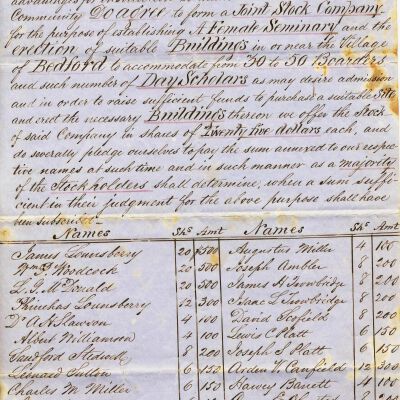 Community Do agree to form a Joint Stock Company
for the purpose of establishing A Female Seminary and the
erection of suitable Buildings in or near the Village
of Bedford to accommodate from 30 to 50 Boarders
and such number of Day Scholars as may desire admission
and in order to raise sufficient funds to purchase a suitable Site
and erect the necessary Buildings thereon we offer the Stock
of said Company in shares of Twenty five dollars each, and
do severally pledge ourselves to pay the sum annexed to our respec-
tive names at such time and in such manner as a majority
of the Stockholders shall determine, when a sum suffi-
cient in their judgment for the above purpose shall have
been subscribed
Names Shs Amt Names Shs Amt
James Lounsbery 20 500 Augustus Miller 4 100
Wm Woodcock 20 500 Joseph Ambler 8 200
L. G. McDonald 20 500 James H Trowbridge 8 200
Phinehas Lounsberry 12 300 Isaac T Trowbridge 8 200
Dr A N Slawson 4 100 David Scofield 8 200
Albert Williamson 4 100 Lewis C Platt 6 150
Sandford 8 200 Joseph S Platt 6 150
Leonard Sutton 6 150 Arden H Canfield 12 300
Charles M. Miller 6 150 Harvey Barrett 4 100